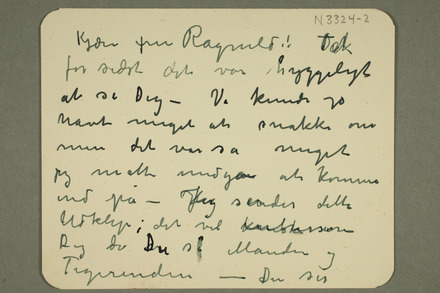 N3324-2
Kjære fru Ragnild!! Tak
for sidst det var hyggeligt
at se Dig – Vi kunde jo
havt meget at snakke om
men det var så meget
jeg måtte undgå at komme
ind på – Jeg sender dette
Udklip; det vil
Dig da Du så Manden og
Tigerinden – Du ses